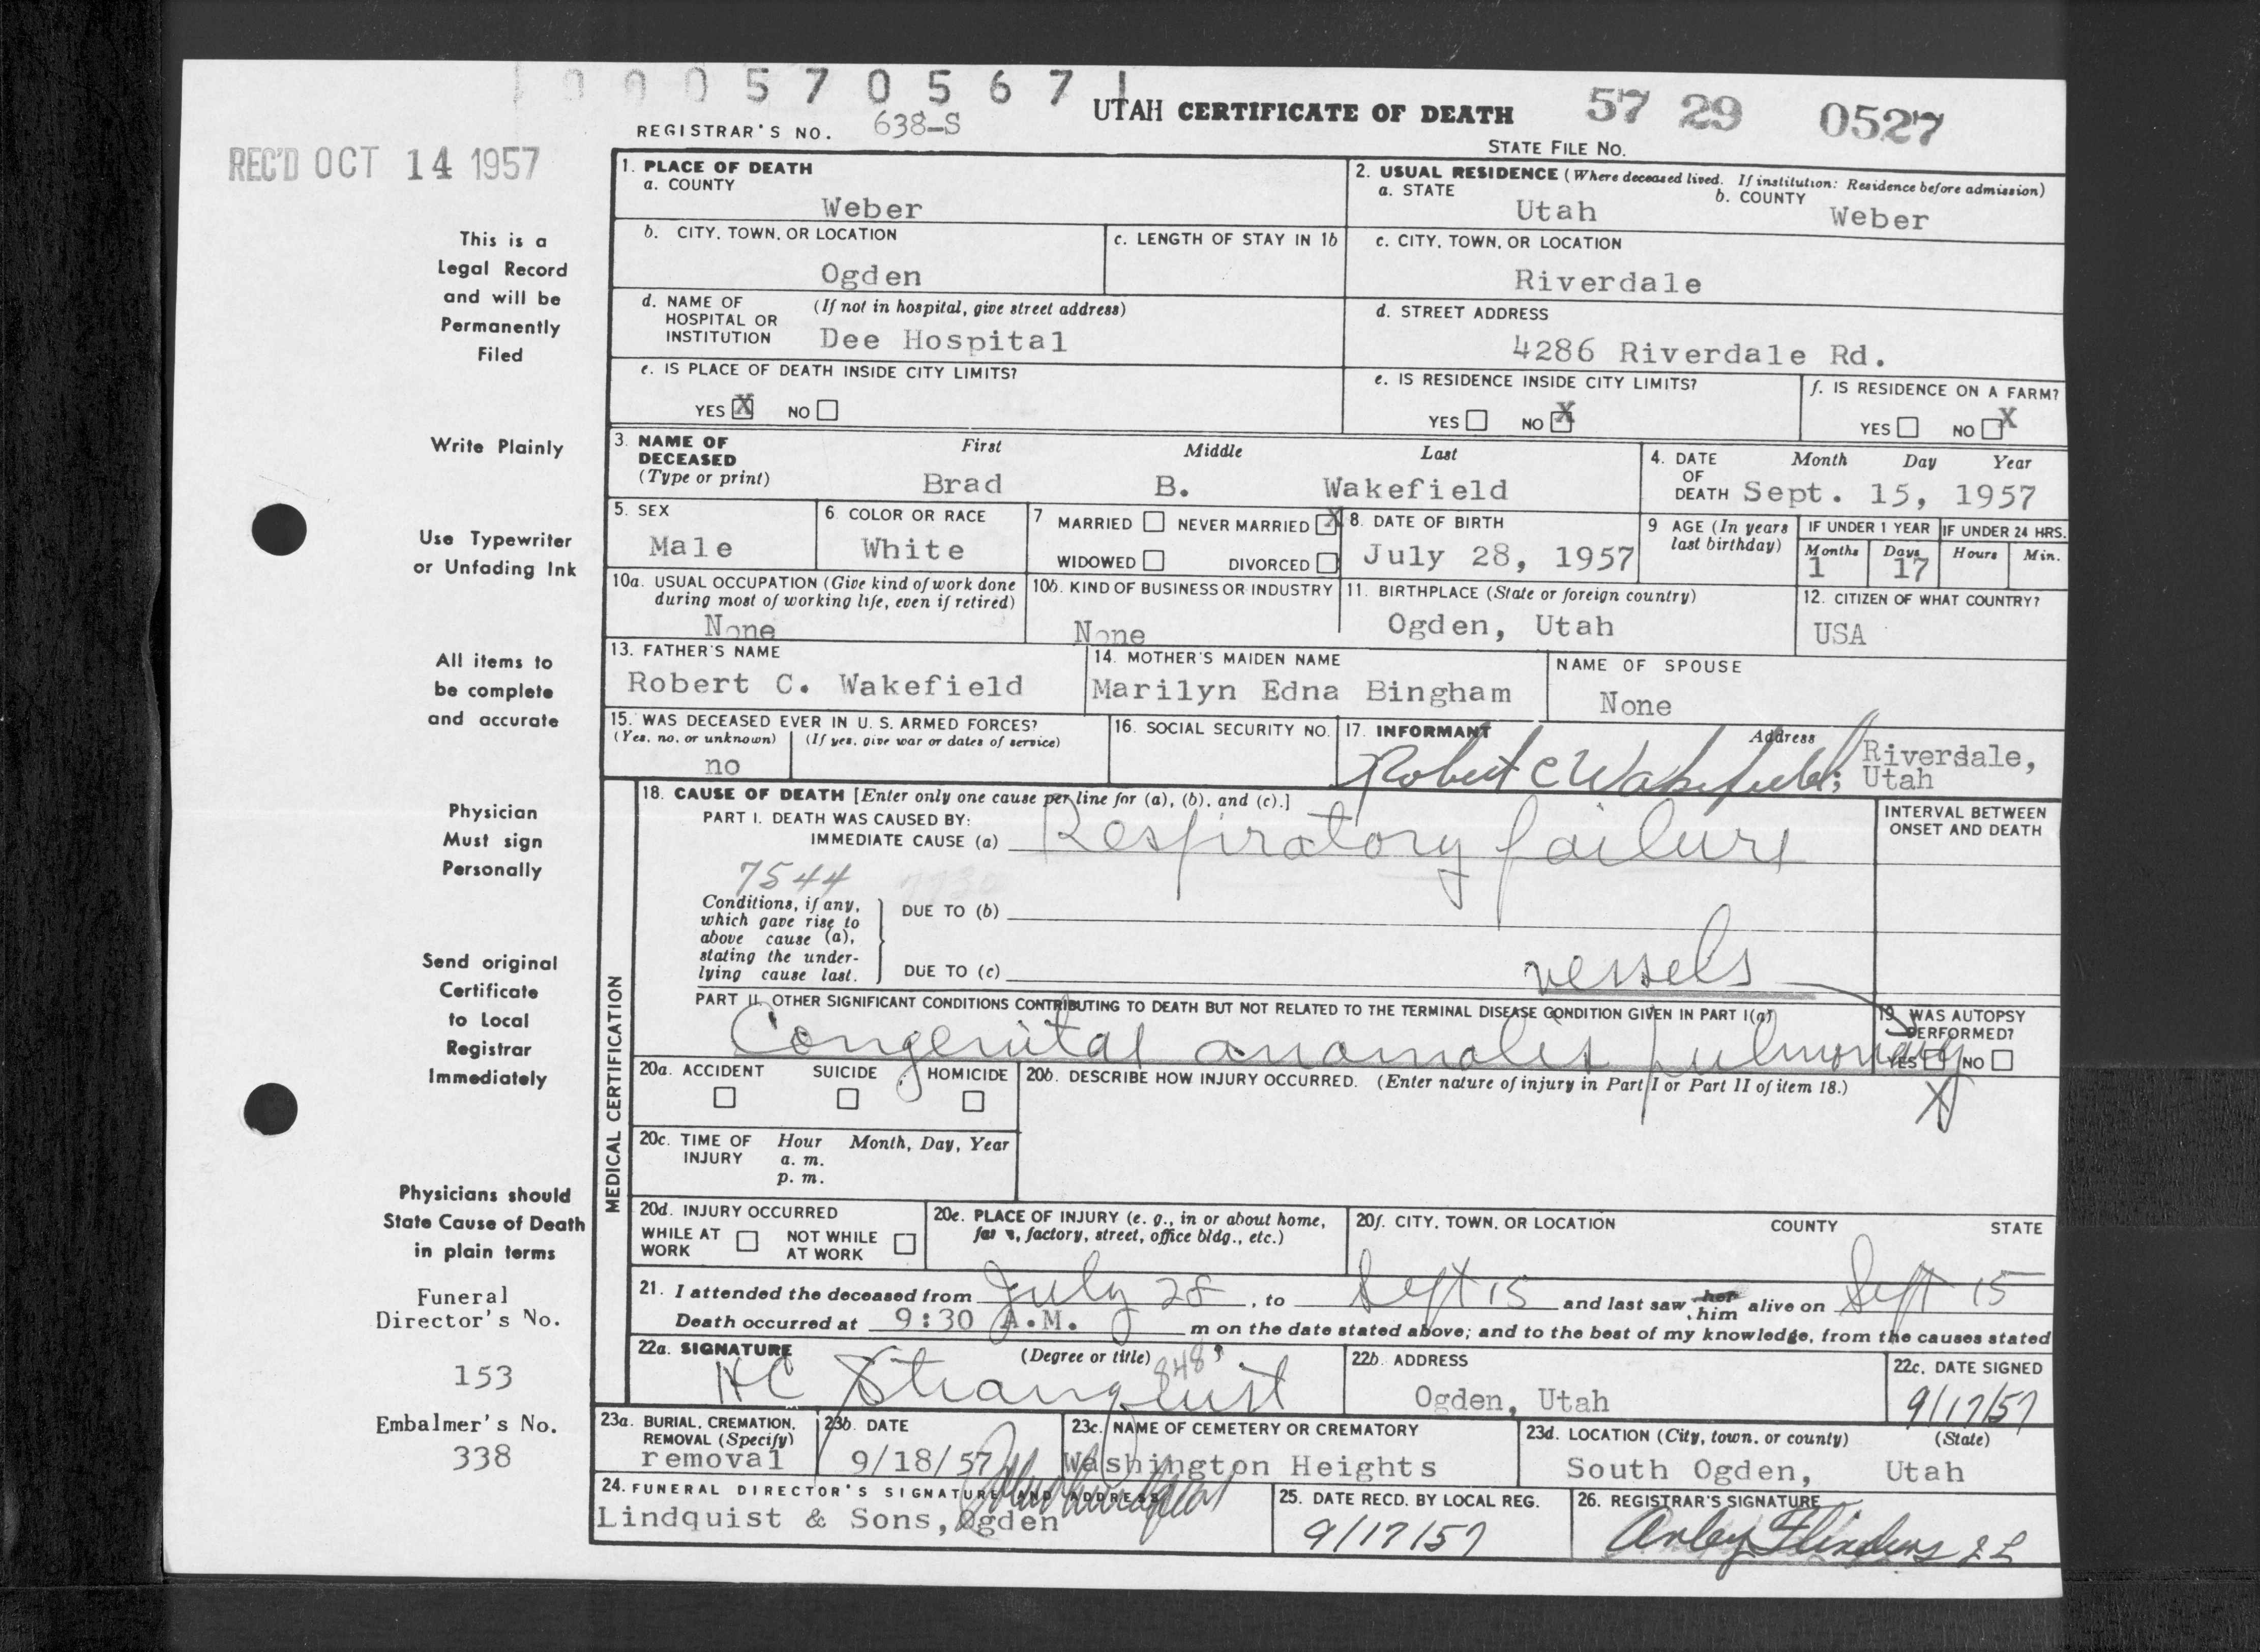 1 0 0 0 5 7 0 5 6 7 1
REGISTRAR'S NO. 638-S
UTAH CERTIFICATE OF DEATH
57 29 0527
STATE FILE No.
REC'D OCT 14 1957
This is a
Legal Record
and will be
Permanently
Filed
Write Plainly
Use Typewriter
or Unfading Ink
All items to
be complete
and accurate
Physician
Must sign
Personally
Send original
Certificate
to Local
Registrar
Immediately
Physicians should
State Cause of Death
in plain terms
Funeral
Director's No.
153
Embalmer's No.
338
1. PLACE OF DEATH
a. COUNTY
Weber
2. USUAL RESIDENCE (Where deceased lived. If institution: Residence before admission)
a. STATE Utah b. COUNTY Weber
b. CITY, TOWN, OR LOCATION
Ogden
c. LENGTH OF STAY IN 1b
c. CITY, TOWN, OR LOCATION
Riverdale
d. NAME OF HOSPITAL OR INSTITUTION (If not in hospital, give street address)
Dee Hospital
d. STREET ADDRESS
4286 Riverdale Rd.
e. IS PLACE OF DEATH INSIDE CITY LIMITS?
YES X NO
e. IS RESIDENCE INSIDE CITY LIMITS?
YES NO X
f. IS RESIDENCE ON A FARM?
YES NO X
3. NAME OF DECEASED (Type or print)
First Middle Last
Brad B. Wakefield
4. DATE OF DEATH
Month Day Year
Sept. 15, 1957
5. SEX
Male
6. COLOR OR RACE
White
7 MARRIED NEVER MARRIED X
WIDOWED DIVORCED
8. DATE OF BIRTH
July 28, 1957
9 AGE (In years last birthday)
IF UNDER 1 YEAR
Months 1 Days 17
IF UNDER 24 HRS.
Hours Min.
10a. USUAL OCCUPATION (Give kind of work done during most of working life, even if retired)
None
10b. KIND OF BUSINESS OR INDUSTRY
None
11. BIRTHPLACE (State or foreign country)
Ogden, Utah
12. CITIZEN OF WHAT COUNTRY?
USA
13. FATHER'S NAME
Robert C. Wakefield
14. MOTHER'S MAIDEN NAME
Marilyn Edna Bingham
NAME OF SPOUSE
None
15. WAS DECEASED EVER IN U. S. ARMED FORCES?
(Yes, no, or unknown) (If yes, give war or dates of service)
no
16. SOCIAL SECURITY NO.
17. INFORMANT Address
Robert C Wakefield; Riverdale,
Utah
MEDICAL CERTIFICATION
18. CAUSE OF DEATH [Enter only one cause per line for (a), (b), and (c).]
PART I. DEATH WAS CAUSED BY:
IMMEDIATE CAUSE (a) Respiratory failure
INTERVAL BETWEEN
ONSET AND DEATH
7544 7730
Conditions, if any,
which gave rise to
above cause (a),
stating the under-
lying cause last.
DUE TO (b)
DUE TO (c)
vessels
PART II. OTHER SIGNIFICANT CONDITIONS CONTRIBUTING TO DEATH BUT NOT RELATED TO THE TERMINAL DISEASE CONDITION GIVEN IN PART I(a)
Congenital anomalies pulmonary
19. WAS AUTOPSY
PERFORMED?
YES NO
X
20a. ACCIDENT SUICIDE HOMICIDE
20b. DESCRIBE HOW INJURY OCCURRED. (Enter nature of injury in Part I or Part II of item 18.)
20c. TIME OF INJURY
Hour Month, Day, Year
a. m.
p. m.
20d. INJURY OCCURRED
WHILE AT WORK NOT WHILE AT WORK
20e. PLACE OF INJURY (e. g., in or about home,
farm, factory, street, office bldg., etc.)
20f. CITY, TOWN, OR LOCATION COUNTY STATE
21. I attended the deceased from July 28, to Sept 15 and last saw her him alive on Sept 15
Death occurred at 9:30 A.M. m on the date stated above; and to the best of my knowledge, from the causes stated
22a. SIGNATURE (Degree or title) 848
H C Stranquist
22b. ADDRESS
Ogden, Utah
22c. DATE SIGNED
9/17/57
23a. BURIAL, CREMATION, REMOVAL (Specify)
removal
23b. DATE
9/18/57
23c. NAME OF CEMETERY OR CREMATORY
Washington Heights
23d. LOCATION (City, town, or county) (State)
South Ogden, Utah
24. FUNERAL DIRECTOR'S SIGNATURE AND ADDRESS
Lindquist & Sons, Ogden
25. DATE RECD. BY LOCAL REG.
9/17/57
26. REGISTRAR'S SIGNATURE
Arley Flinders